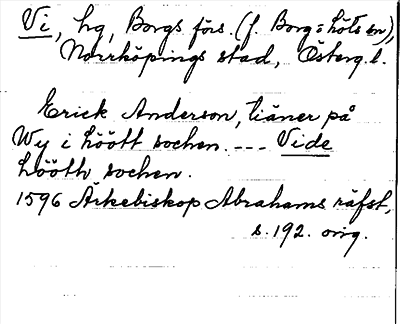 Vi, hg, Borgs förs. (f. Borg o höts sn),
Norrköpings stad, Österg. l.
Erick Anderson, tiäner på
Wy i höött sochen. --- Vide
hööth sochen.
1596 Ärkebiskop Abrahams räfst,
s. 192. orig.